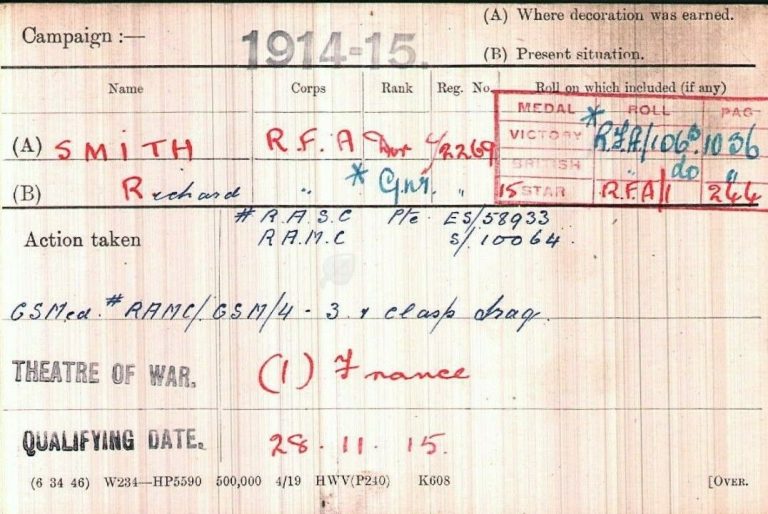 (A) Where decoration was earned.
Campaign :— 1914-15. (B) Present situation.
Name Corps Rank Reg. No. Roll on which included (if any)
MEDAL * ROLL PAG
(A) SMITH R.F.A Dvr 4/2269 VICTORY R.F.A/106B. 1036
BRITISH " do "
(B) Richard " * Gnr. " 15 STAR R.F.A/1 244
# R.A.S.C Pte ES/58933
Action taken R.A.M.C S/10064.
GSMed. # RAMC/GSM/4 - 3. & clasp Iraq.
THEATRE OF WAR. (1) France
QUALIFYING DATE. 28. 11. 15.
(6 34 46) W234—HP5590 500,000 4/19 HWV(P240) K608 [OVER.